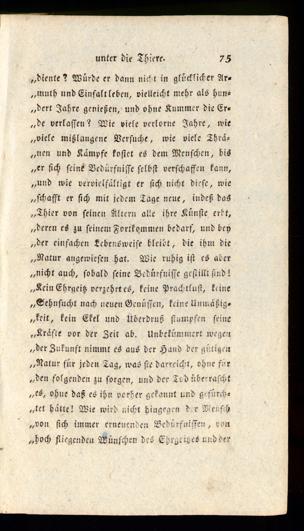 unter die Thiere. 75
„diente? Würde er dann nicht in glücklicher Ar⸗
„muth und Einfalt leben, vielleicht mehr als hun⸗
„dert Jahre genießen, und ohne Kummer die Er⸗
„de verlassen? Wie viele verlorne Jahre, wie
„viele mißlangene Versuche, wie viele Thrä⸗
„nen und Kämpfe kostet es dem Menschen, bis
„er sich seine Bedürfnisse selbst verschaffen kann,
„und wie vervielfältiget er sich nicht diese, wie
„schafft er sich mit jedem Tage neue, indeß das
„Thier von seinen Ältern alle ihre Künste erbt,
„deren es zu seinem Fortkommen bedarf, und bey
„der einfachen Lebensweise bleibt, die ihm die
„Natur angewiesen hat. Wie ruhig ist es aber
„nicht auch, sobald seine Bedürfnisse gestillt sind!
„Kein Ehrgeitz verzehrt es, keine Prachtlust, keine
„Sehnsucht nach neuen Genüssen, keine Unmäßig⸗
„keit, kein Ekel und Überdruß stumpfen seine
„Kräfte vor der Zeit ab. Unbekümmert wegen
„der Zukunft nimmt es aus der Hand der gütigen
„Natur für jeden Tag, was sie darreicht, ohne für
„den folgenden zu sorgen, und der Tod überrascht
„es, ohne daß es ihn vorher gekannt und gefürch⸗
„tet hätte! Wie wird nicht hingegen der Mensch
„von sich immer erneuenden Bedürfnissen, von
„hoch fliegenden Wünschen des Ehrgeitzes und der